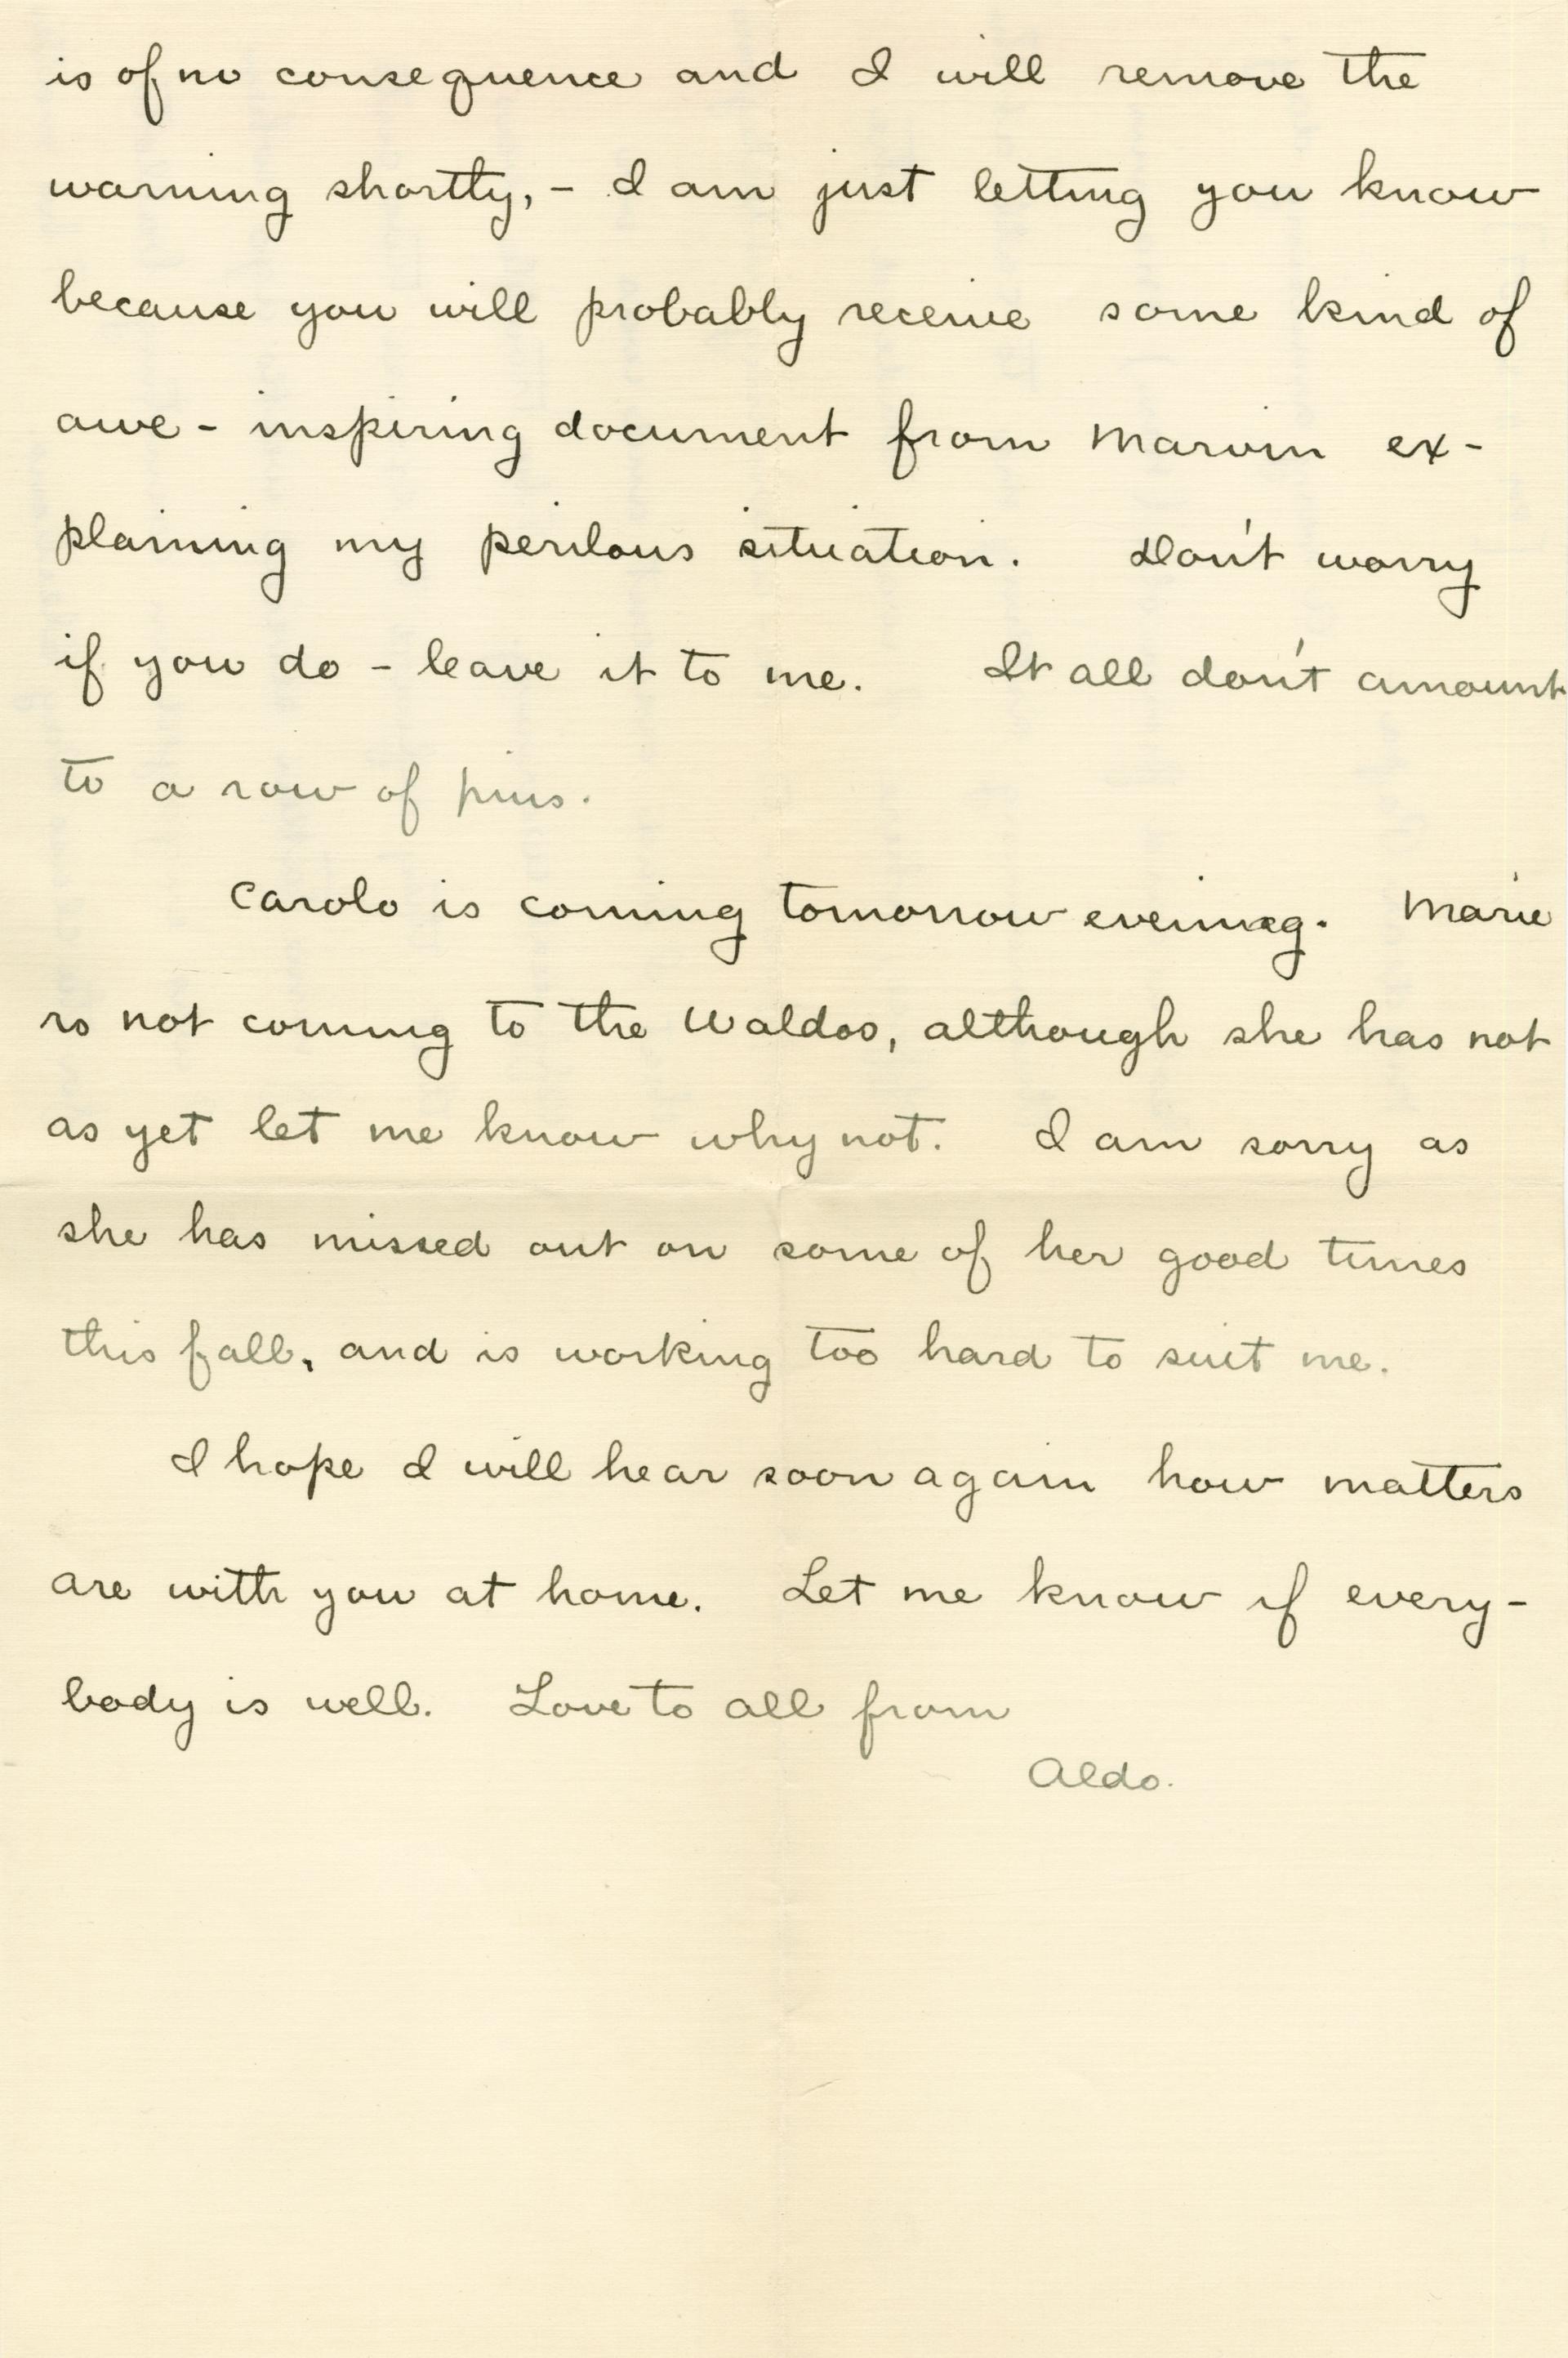 is of no consequence and I will remove the
warning shortly, - I am just letting you know
because you will probably receive some kind of
awe - inspiring document from Marvin ex-
plaining my perilous situation. Don't worry
if you do - leave it to me. It all don't amount
to a row of pins.
Carolo is coming tomorrow evening. Marie
is not coming to the Waldos, although she has not
as yet let me know why not. I am sorry as
she has missed out on some of her good times
this fall, and is working too hard to suit me.
I hope I will hear soon again how matters
are with you at home. Let me know if every-
body is well. Love to all from
Aldo.